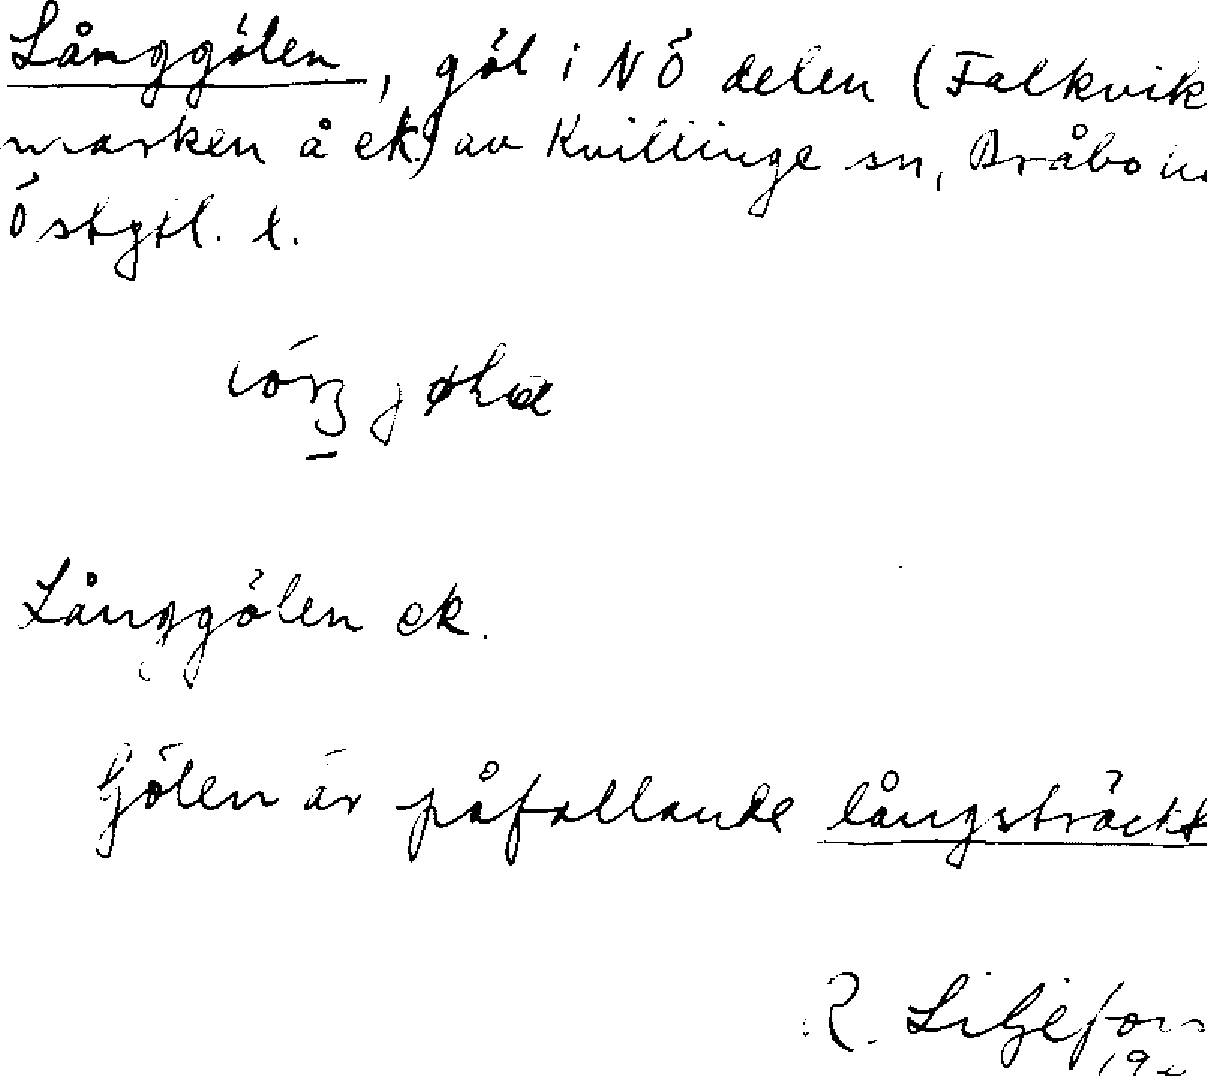 Långgölen, göl i NÖ delen (Falkvik
marken å ek) av Kvillinge sn, Bråbo
Östgtl. l.
Långgölen ek.
Gölen är påfallande långsträckt
R. Liljefors